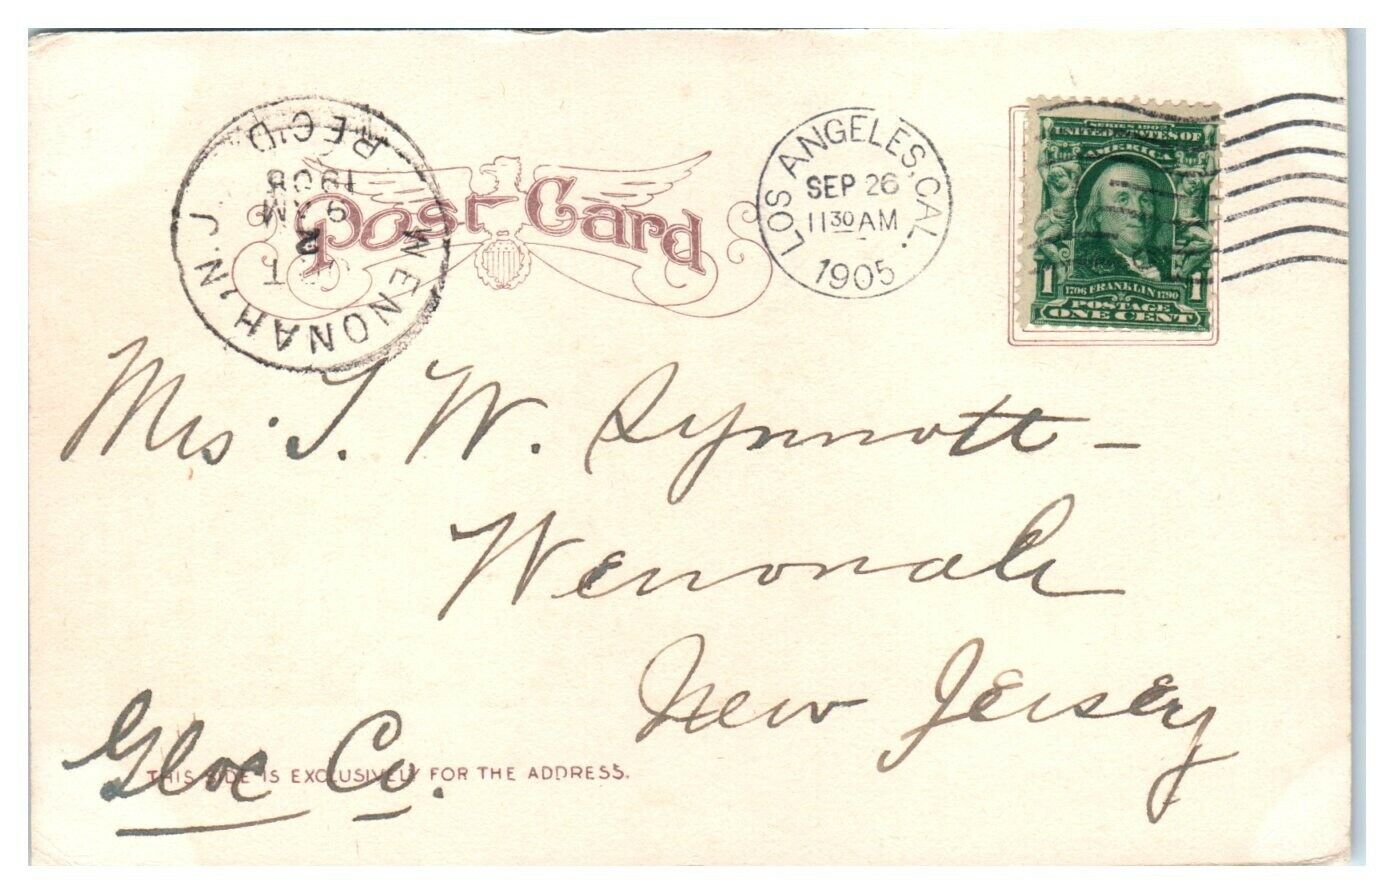 WENONAH, N.J.
9 AM
REC'D
Post Card
LOS ANGELES, CAL.
SEP 26
11 30 AM
1905
SERIES 1902
UNITED STATES OF
AMERICA
1 1
1706 FRANKLIN 1790
POSTAGE
ONE CENT
Mrs. T. W. Synnott -
Wenonah
New Jersey
Gloc Co.
THIS SIDE IS EXCLUSIVELY FOR THE ADDRESS.